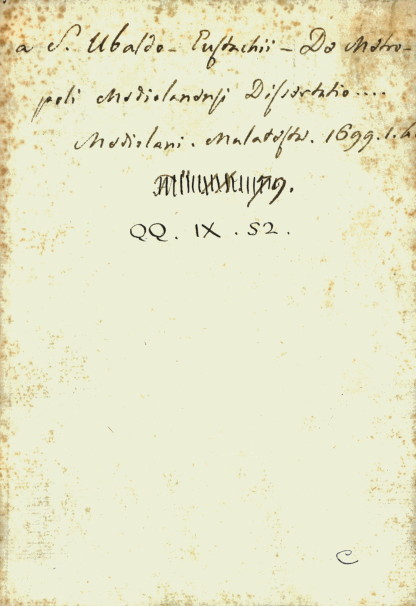 a S. Ubaldo - Eustachii - De Metro-
poli Mediolanensi Dissertatio....
Mediolani. Malatesta. 1699. 1.
QQ. IX. 52.
C